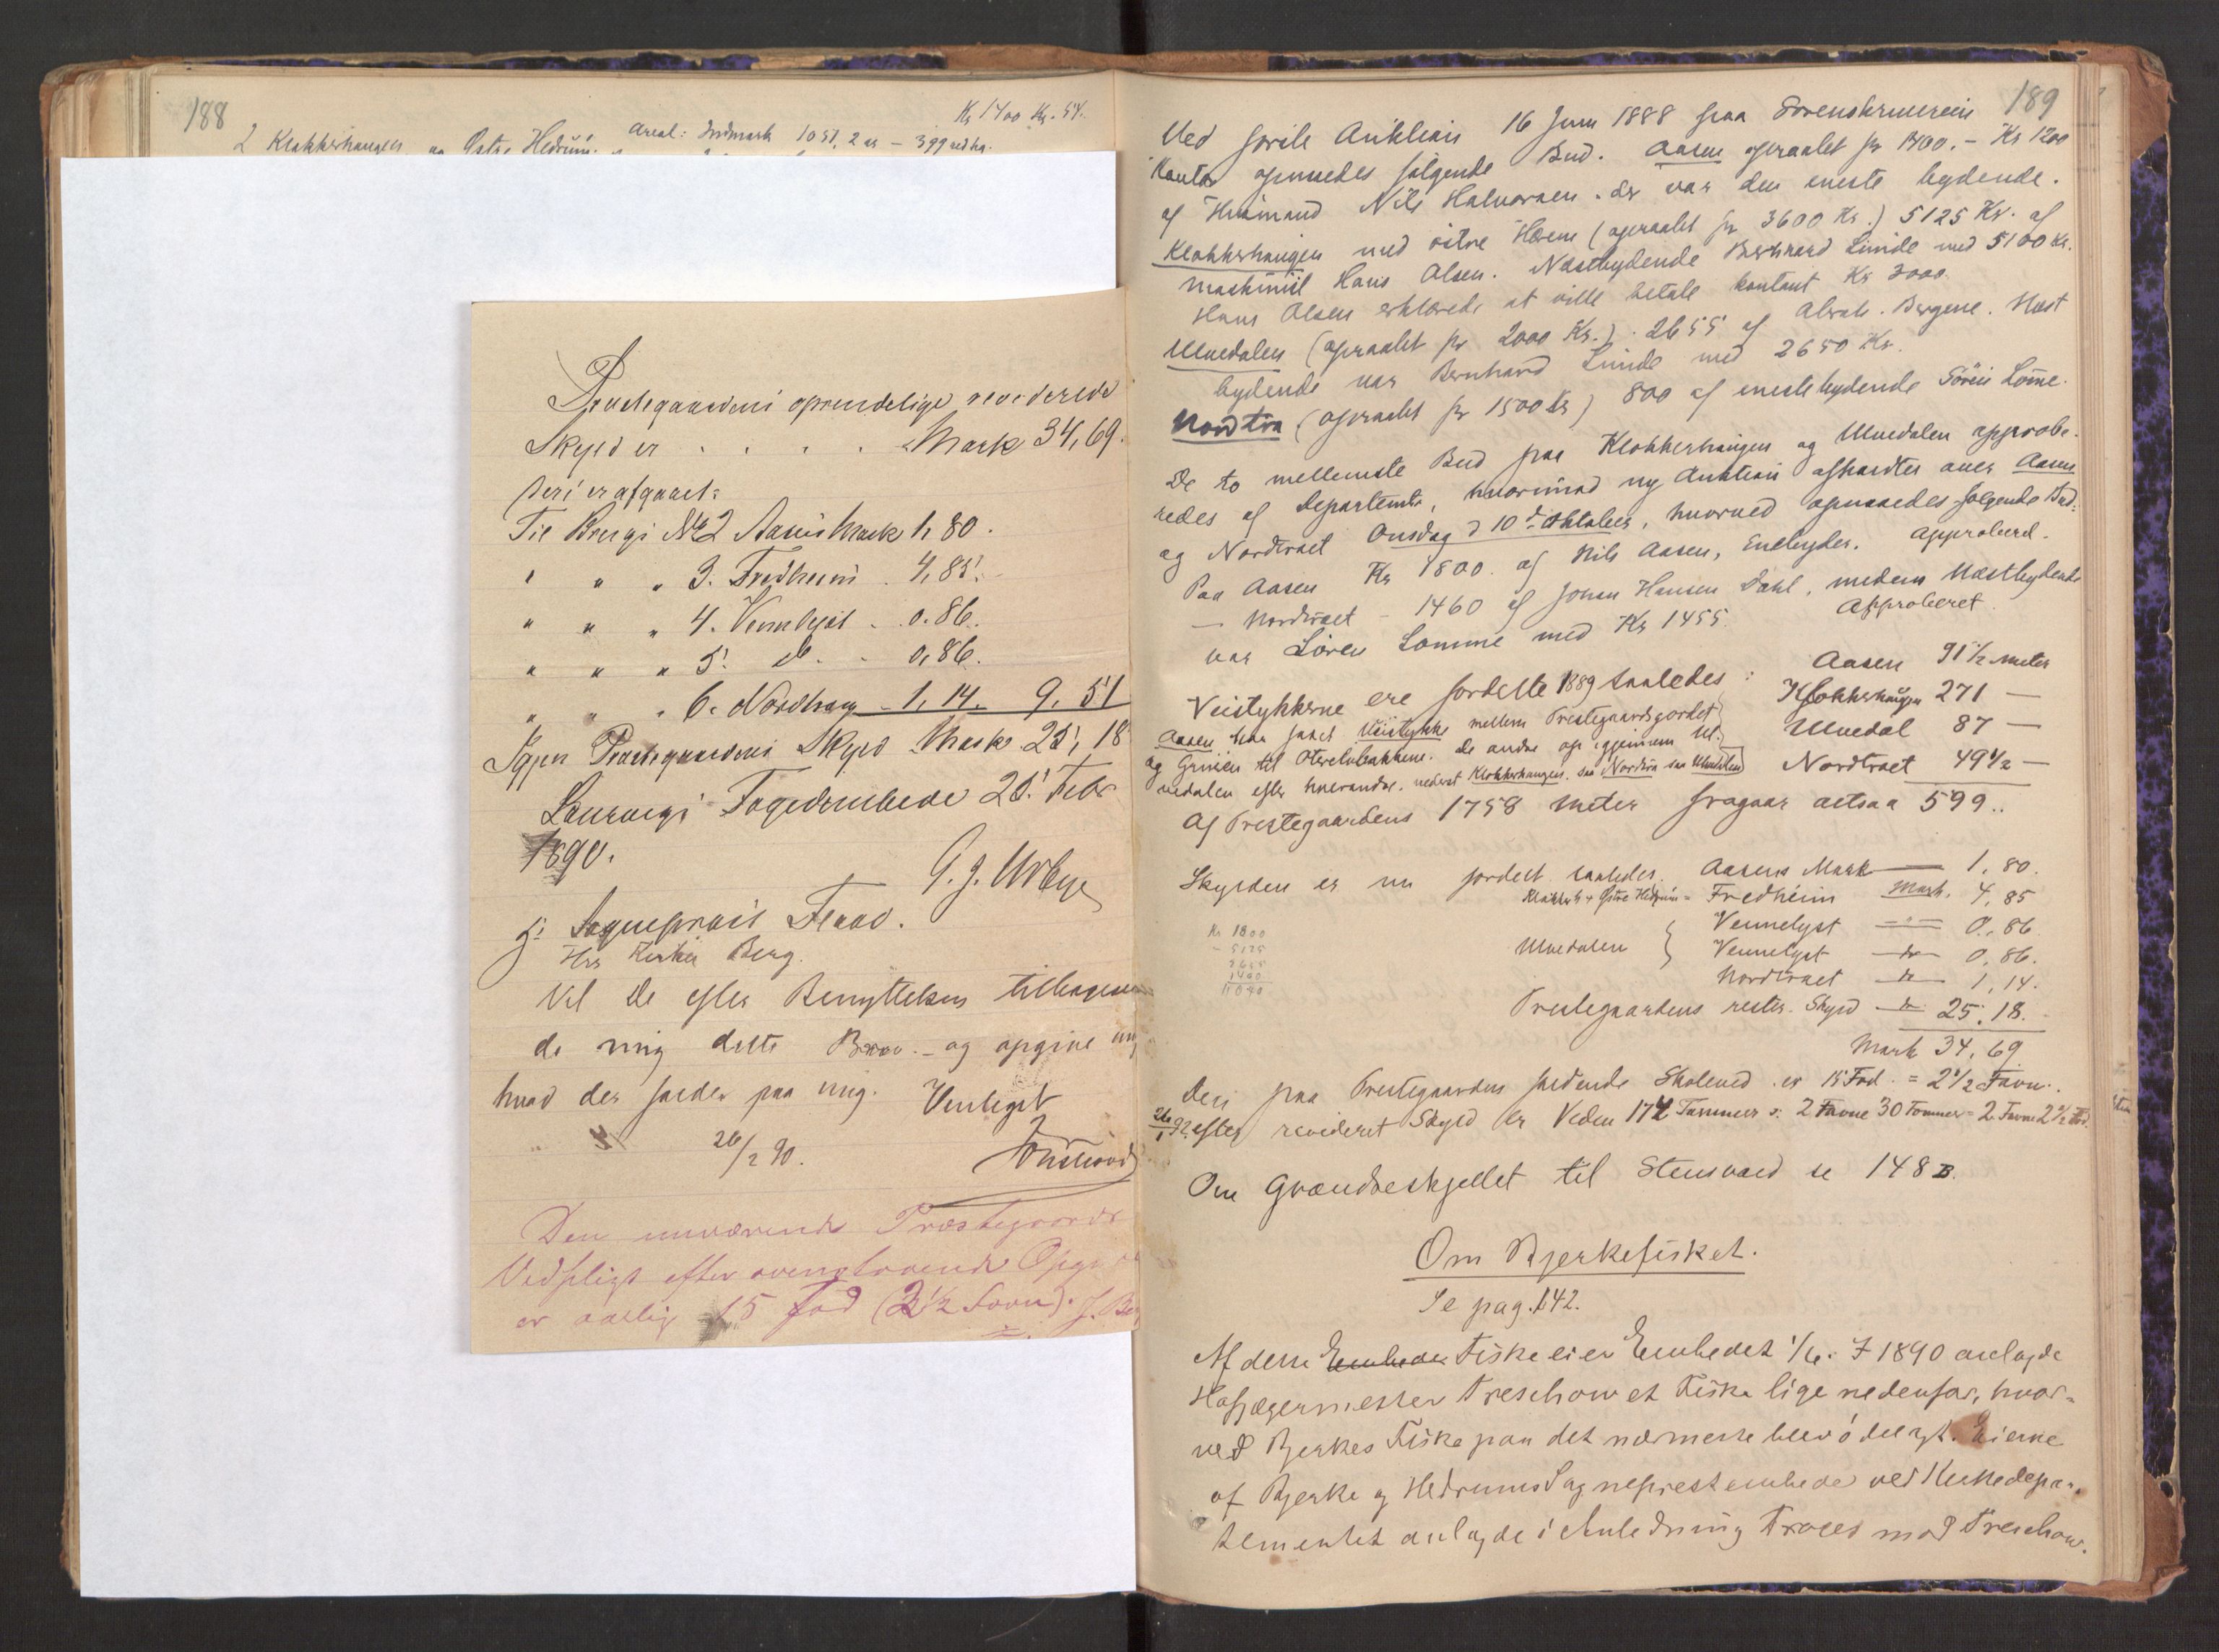 188
Kr 1400 Kr. 54.
2 Klokkerhaugen og Østre Hedrum. Areal: Indmark 1051,2 ar – 399 udhg.
Prestegaardens oprindelige reviderede
Skyld er . . . . Mark 34,69.
Heri er afgaaet:
Til Brugs No 2 Aasens Mark 1,80.
" " " 3. Fredheim . 4,85.
" " " 4. Vennelyst . 0.86.
" " " 5. do . . 0,86.
" " " 6. Nordtraa 1,14. 9,51
Igjen Prestegaardens Skyld Mark 25,18
Laurvigs Fogedembede 25. Febr
1890.
G. J. Urbye
Hr Sogneprest Flood.
Hrr Kirkev Berg.
Vil De efter Benyttelsen tilbagesen
de mig dette Brev. – og opgive mig
hvad der falder paa mig. Venligst
26/2 90.
Den nuværende Præstegaards
Vedpligt efter ovenstaaende Opgave
er aarlig 15 Fod (2 1/2 Favn). J. Ber
189
Ved forste Auktion 16 Juni 1888 paa Sorenskriverens
Kontor opnaaedes følgende Bud. Aasen opraabt for 1400. – Kr 1200
af Husmand Nils Halvorsen. der var den eneste bydende.
Klokkerhaugen med østre Hærem (opraabt for 3600 Kr.) 5125 Kr. af
maskinist Hans Olsen. Næstbydende Bernhard Linde med 5100 Kr.
Hans Olsen erklærede at ville betale kontant Kr 3000.
Ulvedalen (opraabt for 2000 Kr.). 2655 af Abrah. Bergene. Næst
bydende var Bernhard Linde med 2650 Kr.
Nordtra (opraabt for 1500 Kr) 800 af eneste bydende Sören Lomme.
De to mellemste Bud paa Klokkerhaugen og Ulvedalen approbe-
redes af Departemtet, hvorimod ny Auktion afholdtes over Aasen
og Nordtraet Onsdag d 10de Oktober, hvorved opnaaedes følgende Bud:
Paa Aasen Kr 1800. af Nils Aasen, Enebyder. Approberet.
— Nordtraet – 1460 af Johan Hansen Dahl, medens Næstbydende
var Søren Lomme med Kr 1455. Approberet.
Veistykkerne ere fordelte 1889 saaledes: Aasen 91 1/2 meter
Klokkerhaugen 271 —
Aasen har faaet Veistykke mellem Prestegaardsjordet Ulvedal 87 —
og Grinien til Oterholtbakkene. De andre op igjennem Ul-
vedalen efter hverandre. nederst Klokkerhaugen. saa Nordtra saa Ulvedalen Nordtraet 49 1/2 —
Af Prestegaardens 1758 meter fragaar altsaa 599..
Skylden er nu fordelt saaledes. Aasens Mark — 1,80.
Klokkerh + Østre Hedrum = Fredheim Mark. 4,85
Ulvedalen { Vennelyst —"— 0,86.
Vennelyst —do— 0,86.
Nordtraet —do— 1,14.
Kr 1800
– 5125
2655
1460
11040
Prestegaardens rester. Skyld —do— 25,18.
Mark 34,69
Den paa Prestegaarden faldende Skoleved er 15 Fod. = 2 1/2 Favn.
26/1 92. efter revideret Skyld er Veden 174 Tommer ɔ: 2 Favne 30 Tommer = 2 Favne 2 1/2 Fod.
Om Grændseskjellet til Stensvold se 148 B.
Om Bjerkefisket.
Se pag. 142.
Af dette Embede Fiske eier Embedet 1/6. I 1890 anlagde
Hofjægermester Treschow et Fiske lige nedenfor, hvor-
ved Bjerkes Fiske paa det nærmeste blev ödelagt. Eierne
af Bjerke og Hedrums Sogneprestembede ved Kirkedepar-
tementet anlagde i Anledning Proces mod Treschow.